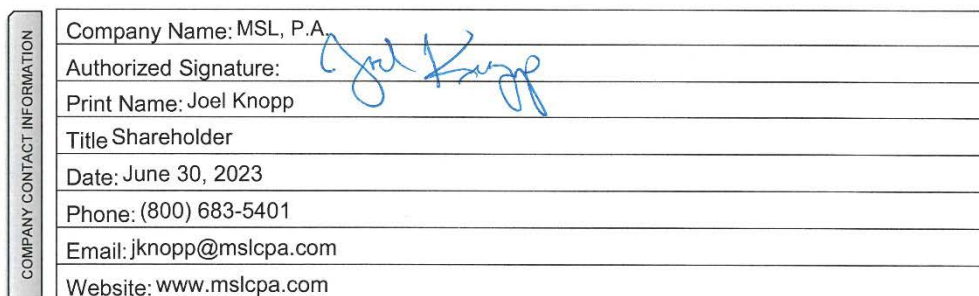 COMPANY CONTACT INFORMATION
Company Name: MSL, P.A.
Authorized Signature: Joel Knopp
Print Name: Joel Knopp
Title Shareholder
Date: June 30, 2023
Phone: (800) 683-5401
Email: jknopp@mslcpa.com
Website: www.mslcpa.com